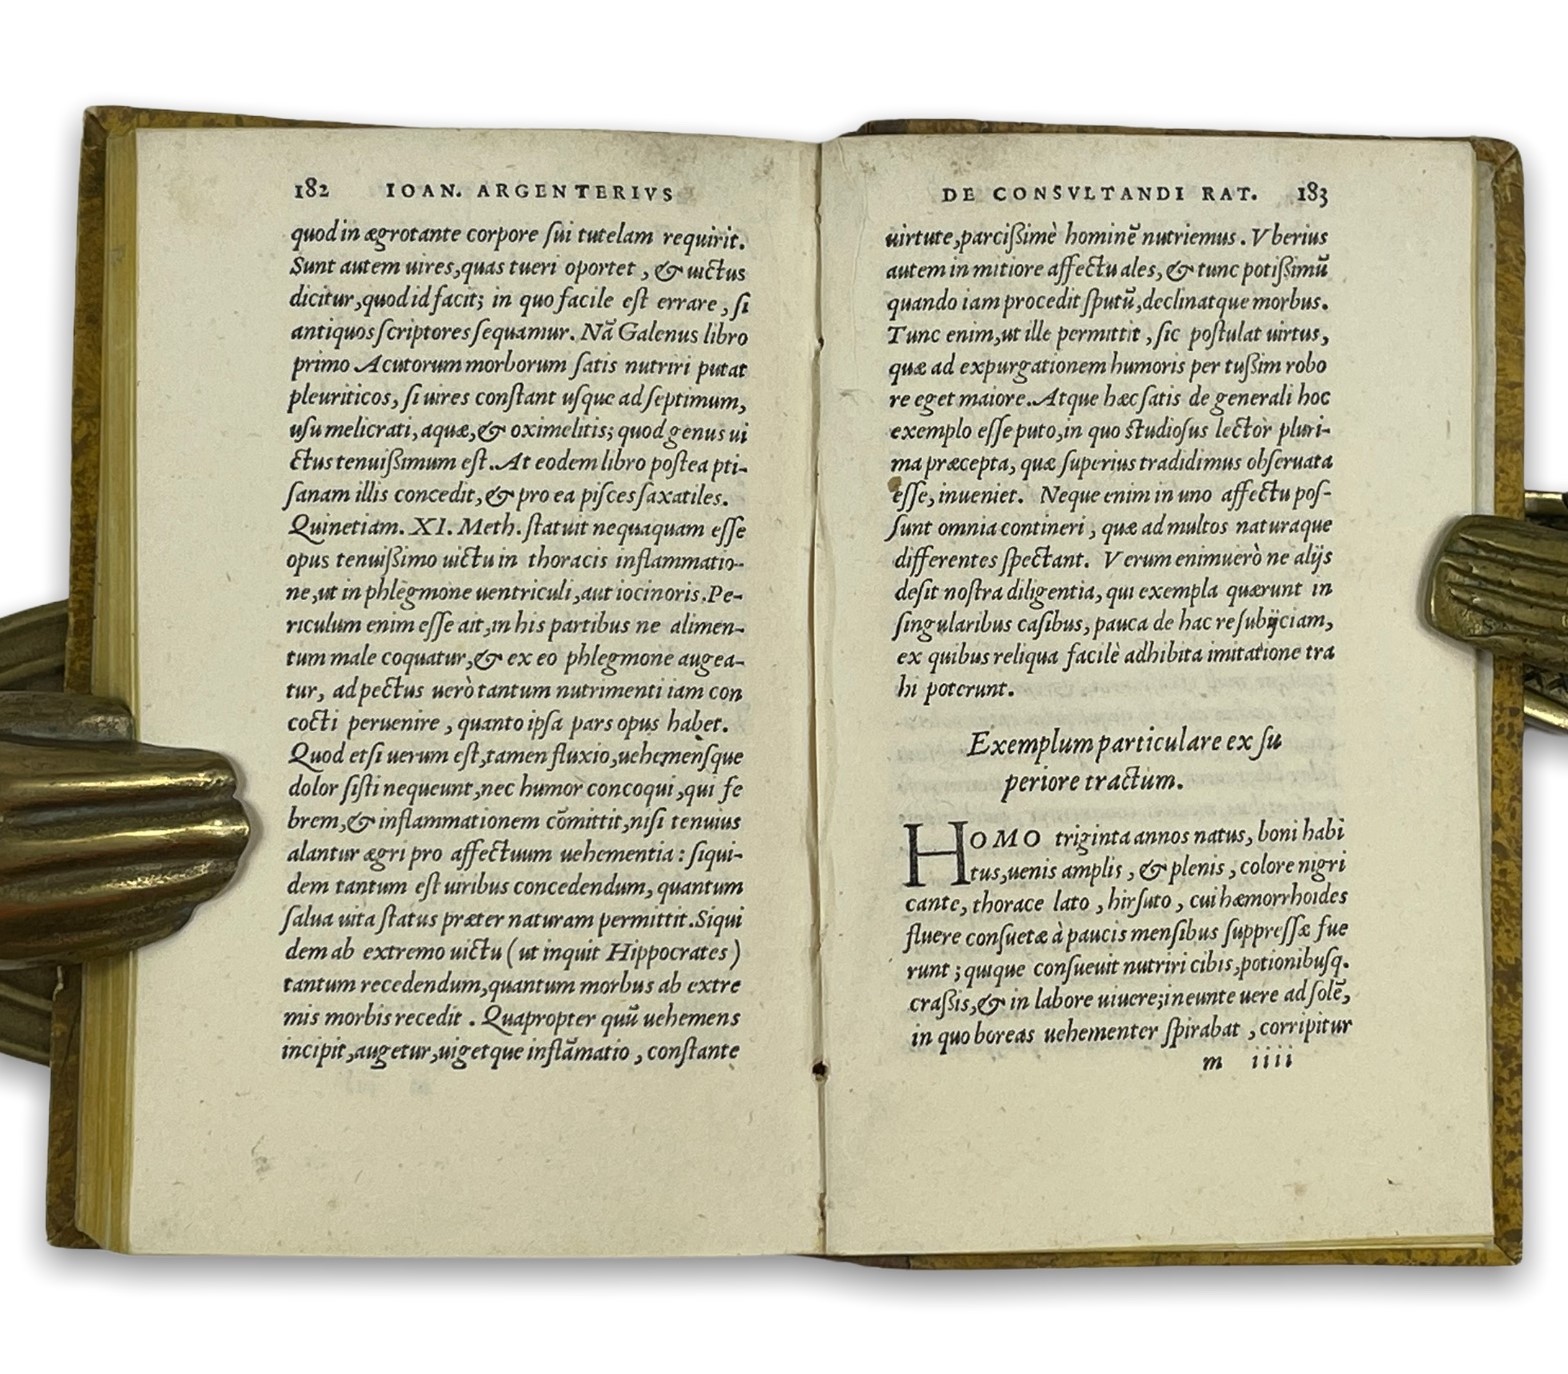 182 IOAN. ARGENTERIVS
quod in ægrotante corpore ſui tutelam requirit.
Sunt autem uires, quas tueri oportet, & uictus
dicitur, quod id facit; in quo facile eſt errare, ſi
antiquos ſcriptores ſequamur. Nã Galenus libro
primo Acutorum morborum ſatis nutriri putat
pleuriticos, ſi uires conſtant uſque ad ſeptimum,
uſu melicrati, aquæ, & oximelitis; quod genus ui
ctus tenuißimum eſt. At eodem libro poſtea pti-
ſanam illis concedit, & pro ea piſces ſaxatiles.
Quinetiam. XI. Meth. ſtatuit nequaquam eſſe
opus tenuißimo uictu in thoracis inflammatio-
ne, ut in phlegmone uentriculi, aut iocinoris. Pe-
riculum enim eſſe ait, in his partibus ne alimen-
tum male coquatur, & ex eo phlegmone augea-
tur, ad pectus uerò tantum nutrimenti iam con
cocti peruenire, quanto ipſa pars opus habet.
Quod etſi uerum eſt, tamen fluxio, uehemenſque
dolor ſiſti nequeunt, nec humor concoqui, qui fe
brem, & inflammationem cõmittit, niſi tenuius
alantur ægri pro affectuum uehementia: ſiqui-
dem tantum eſt uiribus concedendum, quantum
ſalua uita ſtatus præter naturam permittit. Siqui
dem ab extremo uictu (ut inquit Hippocrates)
tantum recedendum, quantum morbus ab extre
mis morbis recedit. Quapropter quũ uehemens
incipit, augetur, uigetque inflãmatio, conſtante
DE CONSVLTANDI RAT. 183
uirtute, parcißimè hominẽ nutriemus. Vberius
autem in mitiore affectu ales, & tunc potißimũ
quando iam procedit ſputũ, declinatque morbus.
Tunc enim, ut ille permittit, ſic poſtulat uirtus,
quæ ad expurgationem humoris per tußim robo
re eget maiore. Atque hæc ſatis de generali hoc
exemplo eſſe puto, in quo ſtudioſus lector pluri-
ma præcepta, quæ ſuperius tradidimus obſeruata
eſſe, inueniet. Neque enim in uno affectu poſ-
ſunt omnia contineri, quæ ad multos naturaque
differentes ſpectant. Verum enimuerò ne alijs
deſit noſtra diligentia, qui exempla quærunt in
ſingularibus caſibus, pauca de hac re ſubijciam,
ex quibus reliqua facilè adhibita imitatione tra
hi poterunt.
Exemplum particulare ex ſu
periore tractum.
HOMO triginta annos natus, boni habi
tus, uenis amplis, & plenis, colore nigri
cante, thorace lato, hirſuto, cui hæmorrhoides
fluere conſuetæ à paucis menſibus ſuppreſſæ fue
runt; quique conſueuit nutriri cibis, potionibuſq.
craßis, & in labore uiuere; ineunte uere ad ſolẽ,
in quo boreas uehementer ſpirabat, corripitur
m iiii